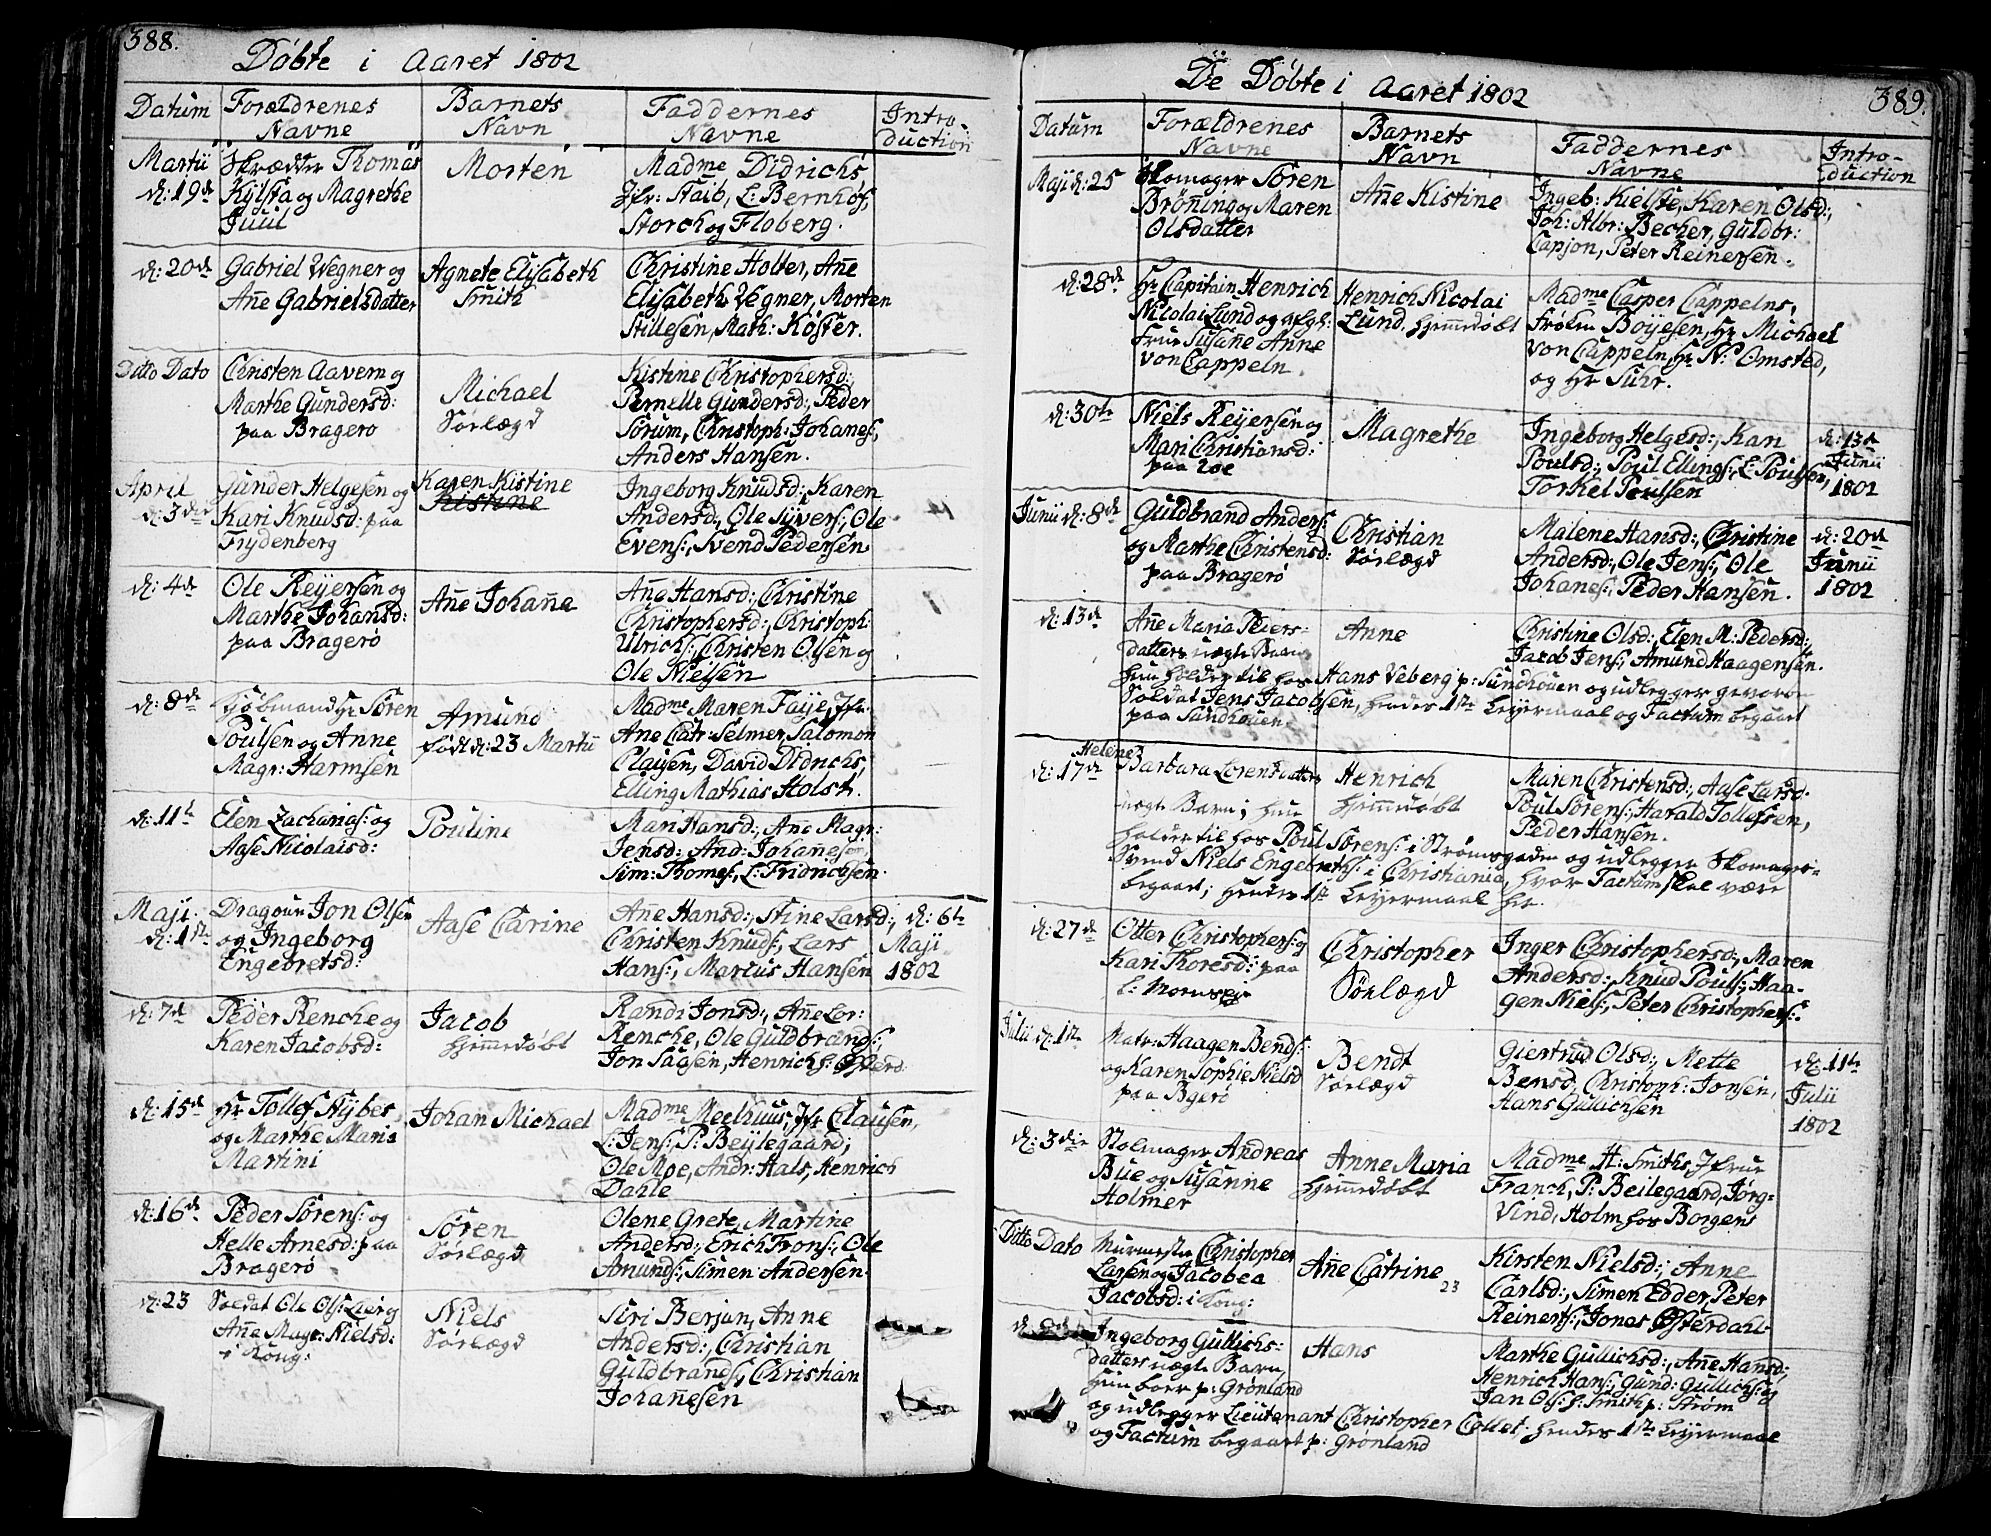 388.
Döbte i Aaret 1802
Datum
Forældrenes Navne
Barnets Navn
Faddernes Navne
Introduction
Martii d: 19de
Skrædder Thomas
og Magrethe
Juul
Morten
Madme Didrichs
Jfr: Staib, L: Bernhof,
Storch og Floberg.
d: 20de
Gabriel Wegner og
Añe Gabrielsdatter
Agnete Elisabeth
Smith
Christine Holter, Añe
Elisabeth Wegner, Morten
Stillesen, Math: Köster.
Ditto Dato
Christen Aavem og
Marthe Gundersd:
paa Bragerö
Michael
Sörlægd
Kistine Christophersd:,
Pernelle Gundersd:, Peder
Sorum, Christoph: Johanes:,
Anders Hansen.
April d: 3die
Gunder Helgesen og
Kari Knudsd: paa
Frydenberg
Karen Kistine
Kistine
Ingeborg Knudsd:, Karen
Andersd:, Ole Syvers:, Ole
Evens:, Svend Pedersen
d: 4de
Ole Reyersen og
Marthe Johansd:
paa Bragerö
Añe Johañe
Aña Hansd:, Christine
Christophersd:, Christoph:
Ulrichs:, Christen Olsen og
Ole Nielsen
d: 8de
Kjöbmand Hr Sören
Poulsen og Anne
Magr: Harmsen
Amund
födt d: 23 Martii
Madme Maren Faye, Jfr:
Ane Catr: Selmer, Salomon
Clausen, David Didrichs,
Elling Mathias Holst.
d: 11te
Elen Zacharias: og
Aase Nicolaisd:
Pouline
Mari Hansd:, Añe Magr:
Jensd: And: Johañesen,
Sim: Thomes:, L: Fridrichsen.
Maji d: 1ste
Dragoun Jon Olsen
og Ingeborg
Engebretsd:
Aase Carine
Añe Hansd:, Stine Larsd:,
Christen Knuds:, Lars
Hans:, Marcus Hansen
d: 6te
Maji
1802
d: 7de
Peder Rencke og
Karen Jacobsd:
Jacob
Hjemmedöbt
Randi Jonsd:, Añe Lor:
Rencke, Ole Guldbrands:,
Jon Saasen, Henrich
d: 15de
Hr Tollef Nyber
og Marthe Maria
Martini
Johan Michael
Madme Meelhuus, Jfr Clausen,
L: Jens:, P: Beylegaard,
Ole Moe, Andr: Hals, Henrich
Dahle
d: 16de
Peder Sörens: og
Helle Arnesd: paa
Bragerö
Sören
Sörlægd
Olene Grete, Martine
Andersd:, Erich Trons:, Ole
Amunds:, Simen Andersen.
d: 23
Soldat Ole Ols: Lier og
Añe Magr: Nielsd:
i Kong:
Niels
Sörlægd
Siri Berjan, Anne
Andersd:, Christian
Guldbrands:, Christian
Johañesen
389.
De Döbte i Aaret 1802
Datum
Forældrenes Navne
Barnets Navn
Faddernes Navne
Introduction
Maji d: 25
Skomager Sören
Bröning og Maren
Olsdatter
Añe Kistine
Ingeb: Kielste, Karen Olsd:,
Joh: Albr: Becher, Guldbr:
Capjon, Peter Reinersen.
d: 28de
Hr Capitain Henrich
Nicolai Lund og
Frue Susañe Anne
von Cappeln
Henrich Nicolai
Lund. Hjemmedöbt
Madme Casper Cappelns,
Fröken Boyesen, Hr Michael
von Cappeln, Hr N: Omsted,
og Hr Suhr.
d: 30te
Niels Reyersen og
Mari Christiansd:
paa
Magrethe
Ingeborg Helgesd:, Kari
Poulsd:, Poul Ellings:, L: Poulsen,
Torkel Poulsen
d: 13de
Junii
1802
Junii d: 8de
Guldbrand Anders:
og Marthe Christensd:
paa Bragerö
Christian
Sörlægd
Malene Hansd:, Christine
Andersd:, Ole Jens:, Ole
Johanes:, Peder Hansen.
d: 20de
Junii
1802
d: 13de
Añe Maria Peiers-
datters uægte Barn,
Anne
Christine Olsd:, Elen M: Pedersd:,
Jacob Jens:, Amund Haagensen.
hun holder til hos Hans Veberg p: Sundhouen og udlegger
Soldat Jens Jacobsen, hendes 1ste Leyermaal og Factum begaaet
paa Sundhouen
d: 17de
Helene
Barbara Lorensdatters
uægte Barn; hun
Henrich
Hjemmedöbt
Maren Christensd:, Aase Larsd:
Poul Sörens:, Harald Tollefsen,
Peder Hansen.
holder til hos Poul Sörens: i Strömsgaden og udlegger Skomager-
Svend Niels Engebreths: i Christiania, hvor Factum skal være
begaaet; hendes 1ste Leyermaal
d: 27de
Otter Christophers: og
Kari Thoresd: paa
Christopher
Sörlægd
Inger Christophersd:, Maren
Andersd:, Knud Pouls:, Haa-
gen Niels:, Peter Christophers:
Julii d: 1ste
Matr: Haagen Bends:
og Karen Sophie Nielsd
paa Bgerö
Bendt
Sörlægd
Giertrud Olsd:, Mette
Bensd:, Christoph: Jonsen,
Hans Gullichsen
d: 11te
Julii
1802
d: 3die
Stolmager Andreas
Bue og Susanne
Holmer
Anne Maria
Hjemmedöbt
Madme H: Smiths, Jfrue
Franch, P: Beilegaard, Jörg-
Vind, Holm hos Borgens
Ditto Dato
Murmester Christopher
Larsen og Jacobea
Jacobsd: i Kong:
Añe Catrine
23
Kirsten Nielsd:, Anne
Carlsd:, Simen Edder, Peter
Reinerts:, Jonas Österdahl
d:
Ingeborg Gullichs-
datters uægte Barn,
hun boer p: Grönland
Hans
Marthe Gullichsd:, Añe Hansd:,
Henrich Hans:, Gund: Gullichs: og
Jan Ols: h: Smith p: Ström
og udlegger Lieutenant Christopher Collet. hendes 1ste Leyermaal
og Factum begaaet p: Grönland